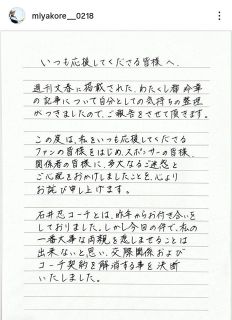 miyakore__0218
いつも応援してくださる皆様へ、
週刊文春に掲載された、わたくし都 玲華
の記事について自分としての気持ちの整理
がつきましたので、ご報告をさせて頂きます。
この度は、私をいつも応援してくださる
ファンの皆様をはじめ、スポンサーの皆様、
関係者の皆様に、多大なるご迷惑と
ご心配をおかけしましたことを、心より
お詫び申し上げます。
石井忍コーチとは、昨年からお付き合いを
しておりました。しかし今回の件で、私の
一番大事な両親を悲しませることは
出来ないと思い、交際関係および
コーチ契約を解消する事を決断
いたしました。